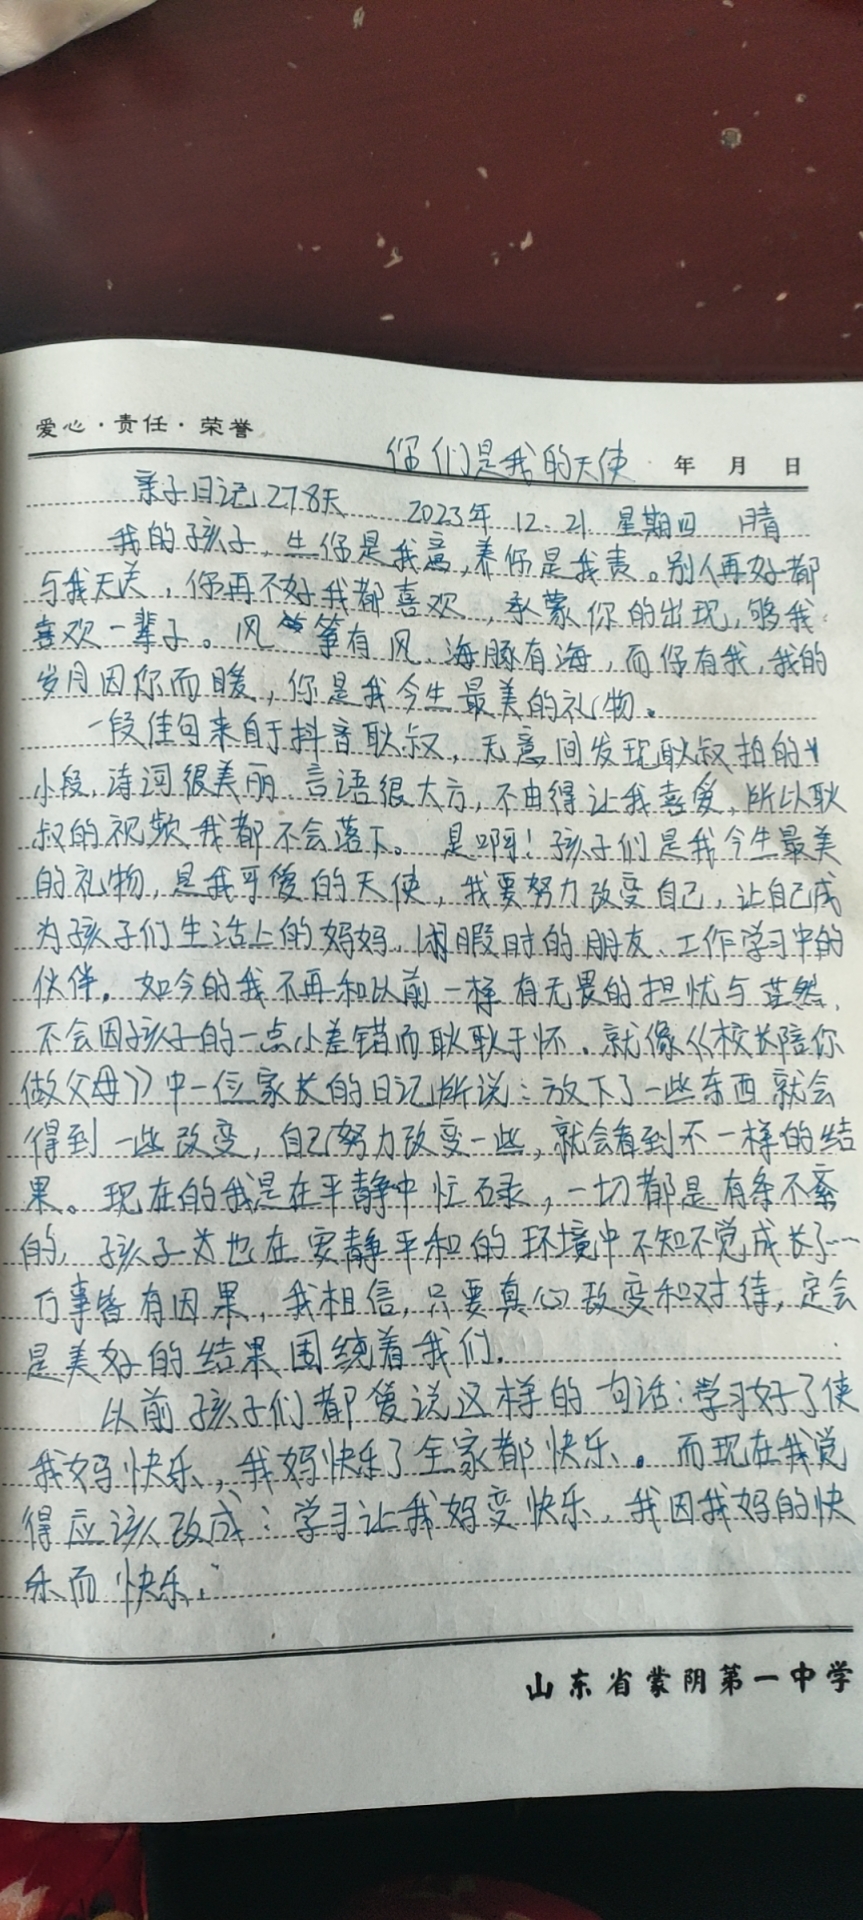 爱心·责任·荣誉
你们是我的天使 年 月 日
亲子日记278天 2023年 12.21 星期四 晴
我的孩子,生你是我意,养你是我责。别人再好都
与我无关,你再不好我都喜欢,承蒙你的出现,够我
喜欢一辈子。风筝有风,海豚有海,而你有我,我的
岁月因你而暖,你是我今生最美的礼物。
一段佳句来自于抖音耿叔,无意间发现耿叔拍的
小段,诗词很美丽,言语很大方,不由得让我喜爱,所以耿
叔的视频我都不会落下。是啊!孩子们是我今生最美
的礼物,是我可爱的天使,我要努力改变自己,让自己成
为孩子们生活上的妈妈,闲暇时的朋友、工作学习中的
伙伴。如今的我不再和以前一样有无畏的担忧与茫然,
不会因孩子的一点小差错而耿耿于怀。就像《校长陪你
做父母》中一位家长的日记所说:放下了一些东西就会
得到一些改变,自己努力改变一些,就会看到不一样的结
果。现在的我是在平静中忙碌,一切都是有条不紊
的,孩子也在安静平和的环境中不知不觉成长了…
万事皆有因果,我相信,只要真心改变和对待,定会
是美好的结果围绕着我们。
以前孩子们都爱说这样的句话:学习好了使
我妈快乐,我妈快乐了全家都快乐。而现在我觉
得应该改成:学习让我妈变快乐,我因我妈的快
乐而快乐。
山东省蒙阴第一中学